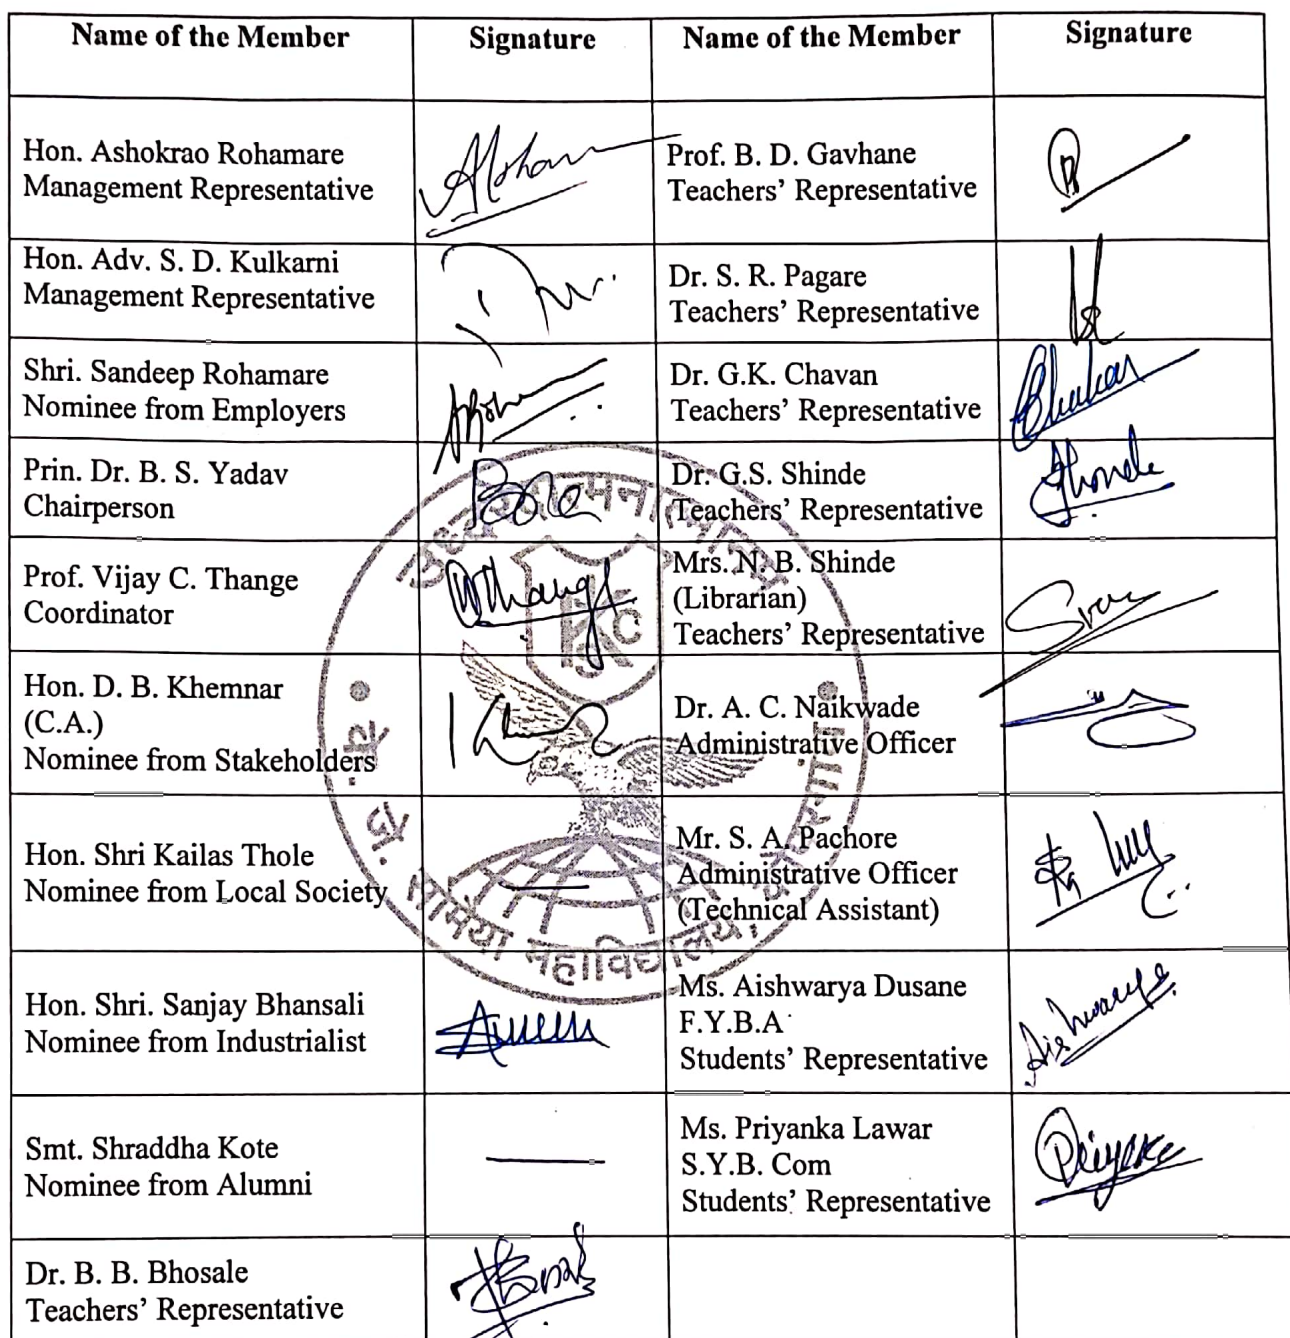 Name of the Member Signature Name of the Member Signature
Hon. Ashokrao Rohamare
Management Representative
Prof. B. D. Gavhane
Teachers' Representative
Hon. Adv. S. D. Kulkarni
Management Representative
Dr. S. R. Pagare
Teachers' Representative
Shri. Sandeep Rohamare
Nominee from Employers
Dr. G.K. Chavan
Teachers' Representative
Prin. Dr. B. S. Yadav
Chairperson
Dr. G.S. Shinde
Teachers' Representative
Prof. Vijay C. Thange
Coordinator
Mrs. N. B. Shinde
(Librarian)
Teachers' Representative
Hon. D. B. Khemnar
(C.A.)
Nominee from Stakeholders
Dr. A. C. Naikwade
Administrative Officer
Hon. Shri Kailas Thole
Nominee from Local Society
Mr. S. A. Pachore
Administrative Officer
(Technical Assistant)
Hon. Shri. Sanjay Bhansali
Nominee from Industrialist
Ms. Aishwarya Dusane
F.Y.B.A
Students' Representative
Aishwarya
Smt. Shraddha Kote
Nominee from Alumni
Ms. Priyanka Lawar
S.Y.B. Com
Students' Representative
Dr. B. B. Bhosale
Teachers' Representative
महाविद्यालय